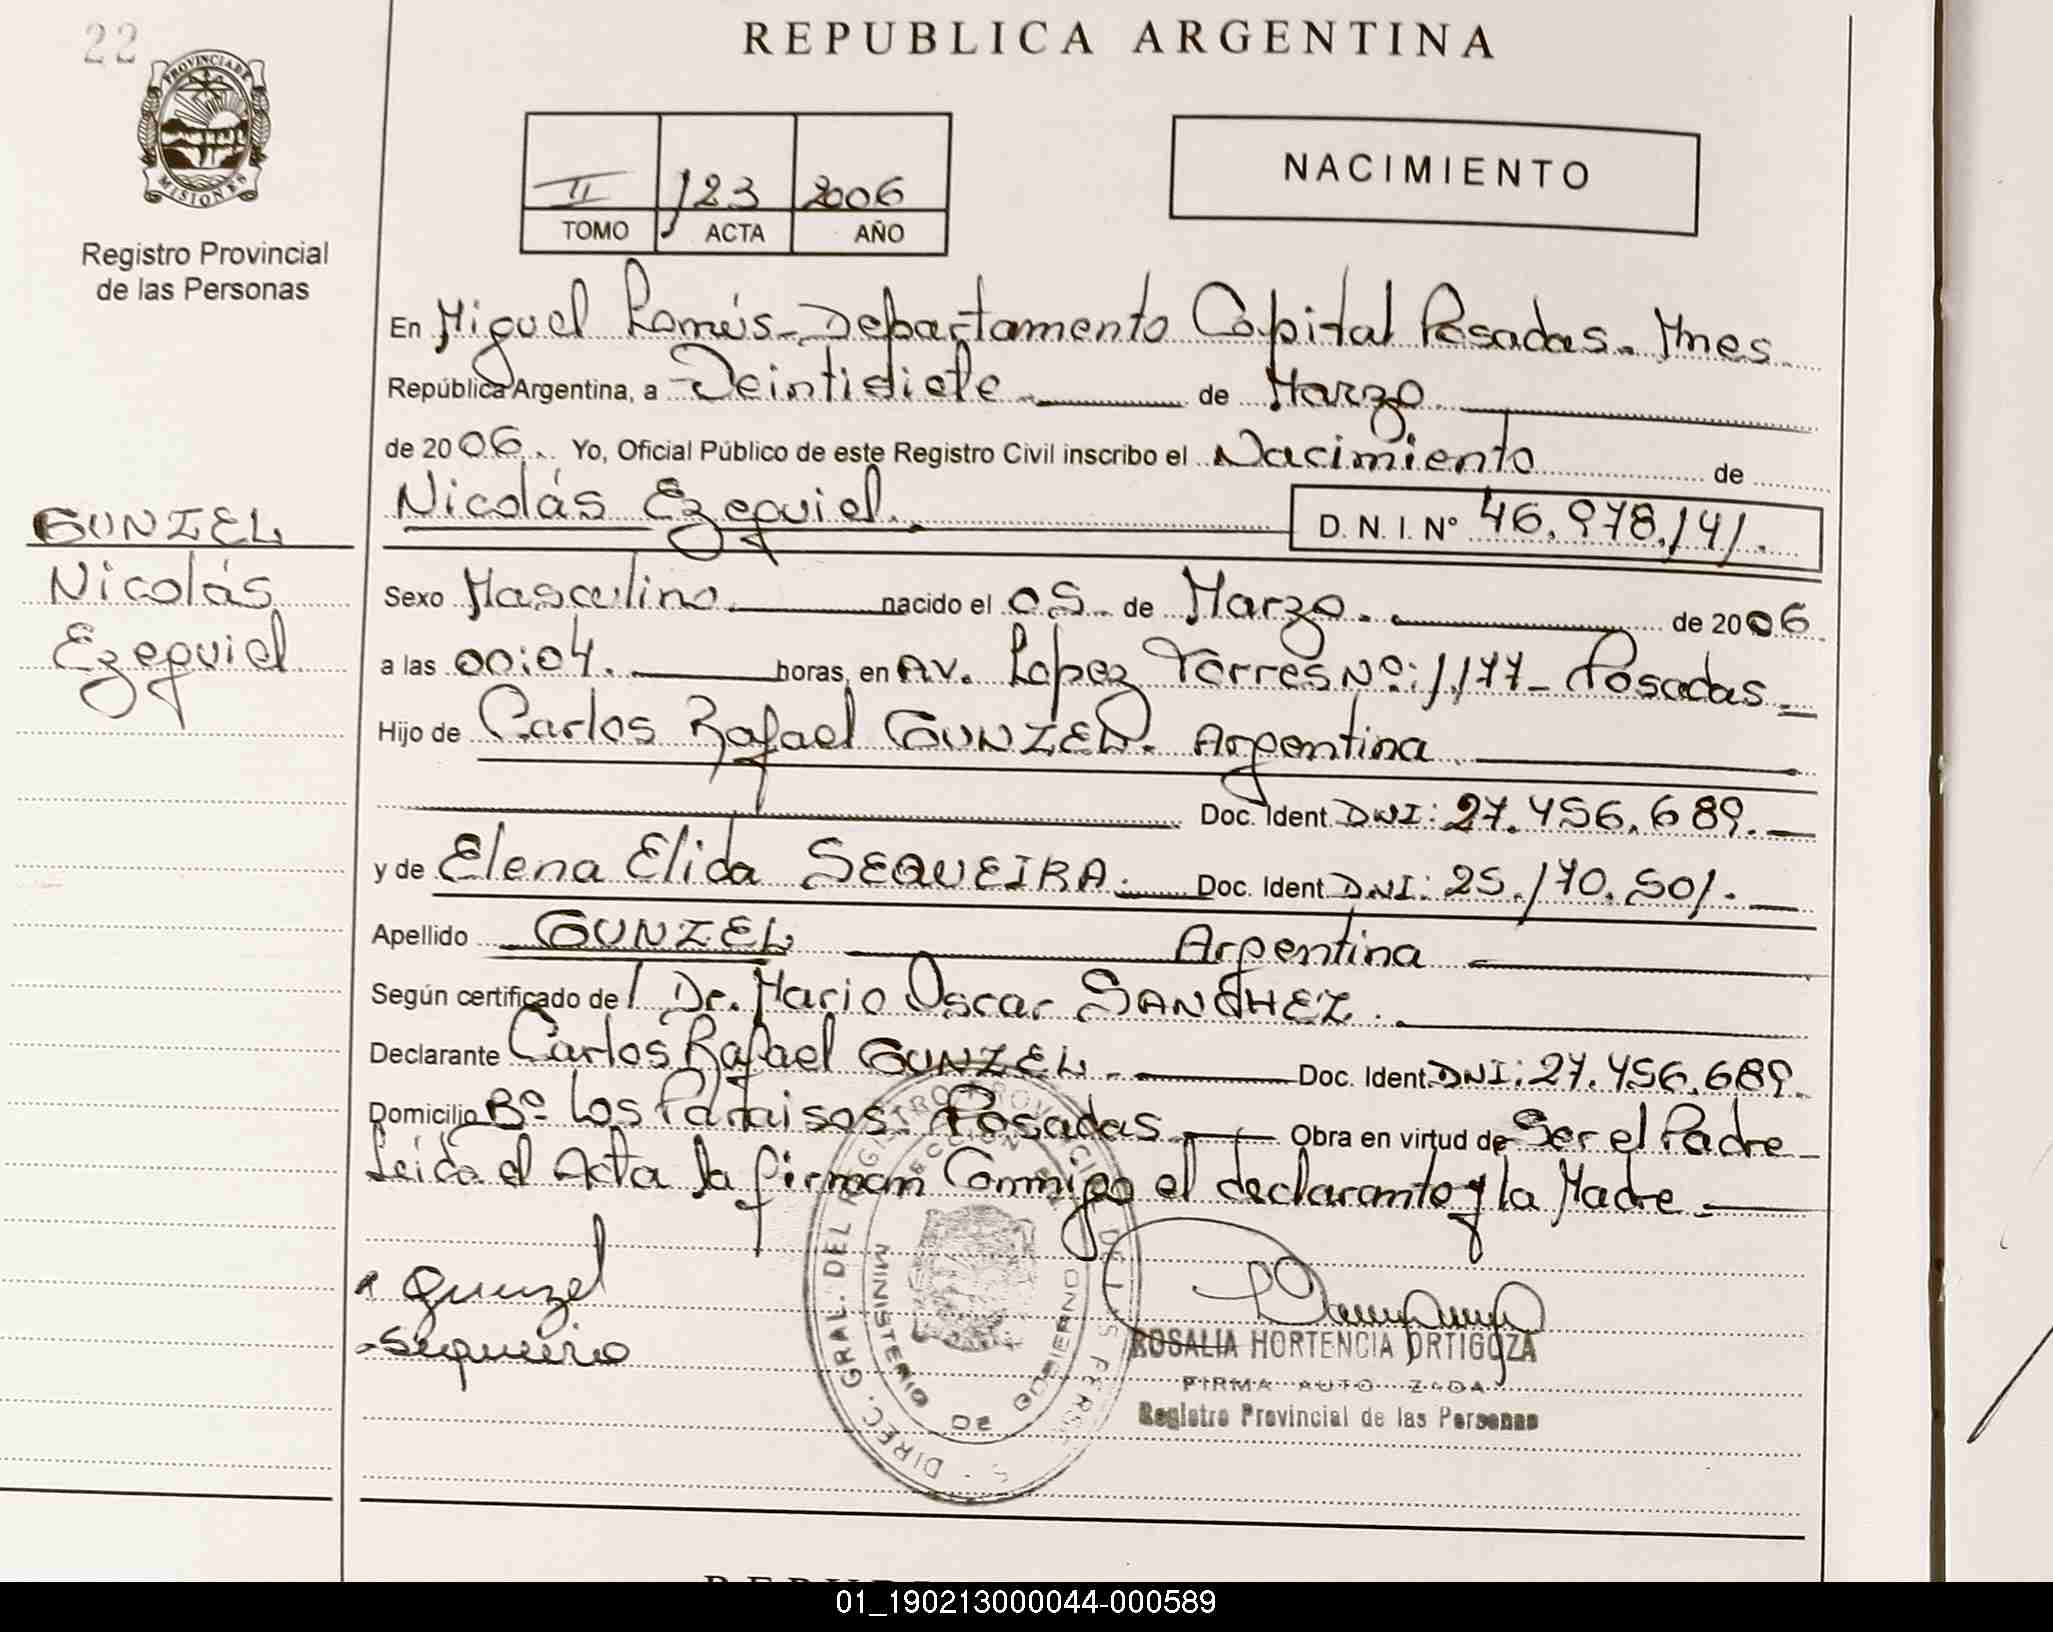 22
REPUBLICA ARGENTINA
PROVINCIA DE
MISIONES
Registro Provincial
de las Personas
II 123 2006
TOMO ACTA AÑO
NACIMIENTO
En Miguel Lanús - Departamento Capital Posadas. Mnes
República Argentina, a Veintisiete de Marzo
de 2006. Yo, Oficial Público de este Registro Civil inscribo el Nacimiento de
Nicolás Ezequiel. D. N. I. Nº 46.978.141.
GUNZEL
Nicolás
Ezequiel
Sexo Masculino nacido el 05 de Marzo. de 2006
a las 00:04. horas, en AV. Lopez Torres Nº: 1.177 - Posadas
Hijo de Carlos Rafael GUNZEL. Argentina
Doc. Ident. DNI: 27.456.689.
y de Elena Elida SEQUEIRA. Doc. Ident. DNI: 25.170.501.
Apellido GUNZEL Argentina
Según certificado del Dr. Mario Oscar SANCHEZ.
Declarante Carlos Rafael GUNZEL. Doc. Ident. DNI: 27.456.689.
Domicilio Bº Los Paraisos. Posadas Obra en virtud de Ser el Padre
Leida el Acta la firman Conmigo el declarante y la Madre
Gunzel
Sequeira
DIREC. GRAL. DEL REGISTRO PROVINCIAL DE LAS PERSONAS
MINISTERIO DE GOBIERNO
ROSALIA HORTENCIA ORTIGOZA
FIRMA AUTO ZADA
Registro Provincial de las Personas
01_190213000044-000589